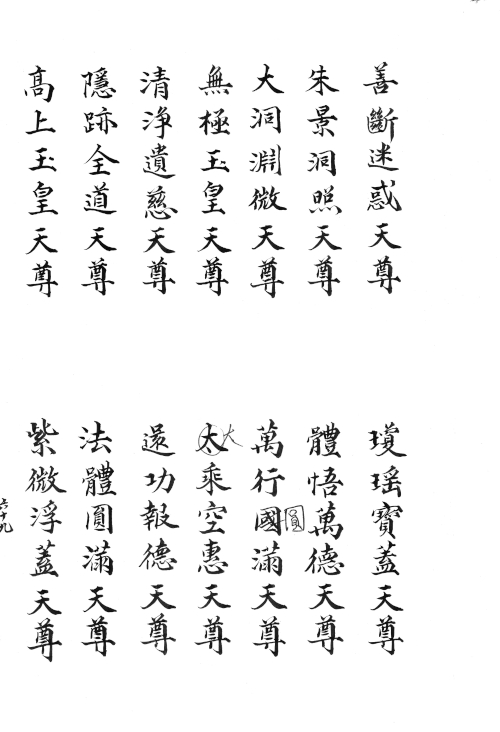 善斷迷惑天尊
朱景洞照天尊
大洞淵微天尊
無極玉皇天尊
清淨遺慈天尊
隱跡全道天尊
高上玉皇天尊
瓊瑤寶蓋天尊
體悟萬德天尊
萬行國滿天尊
圓
太乘空惠天尊
大
還功報德天尊
法體圓滿天尊
紫微浮蓋天尊
六十九